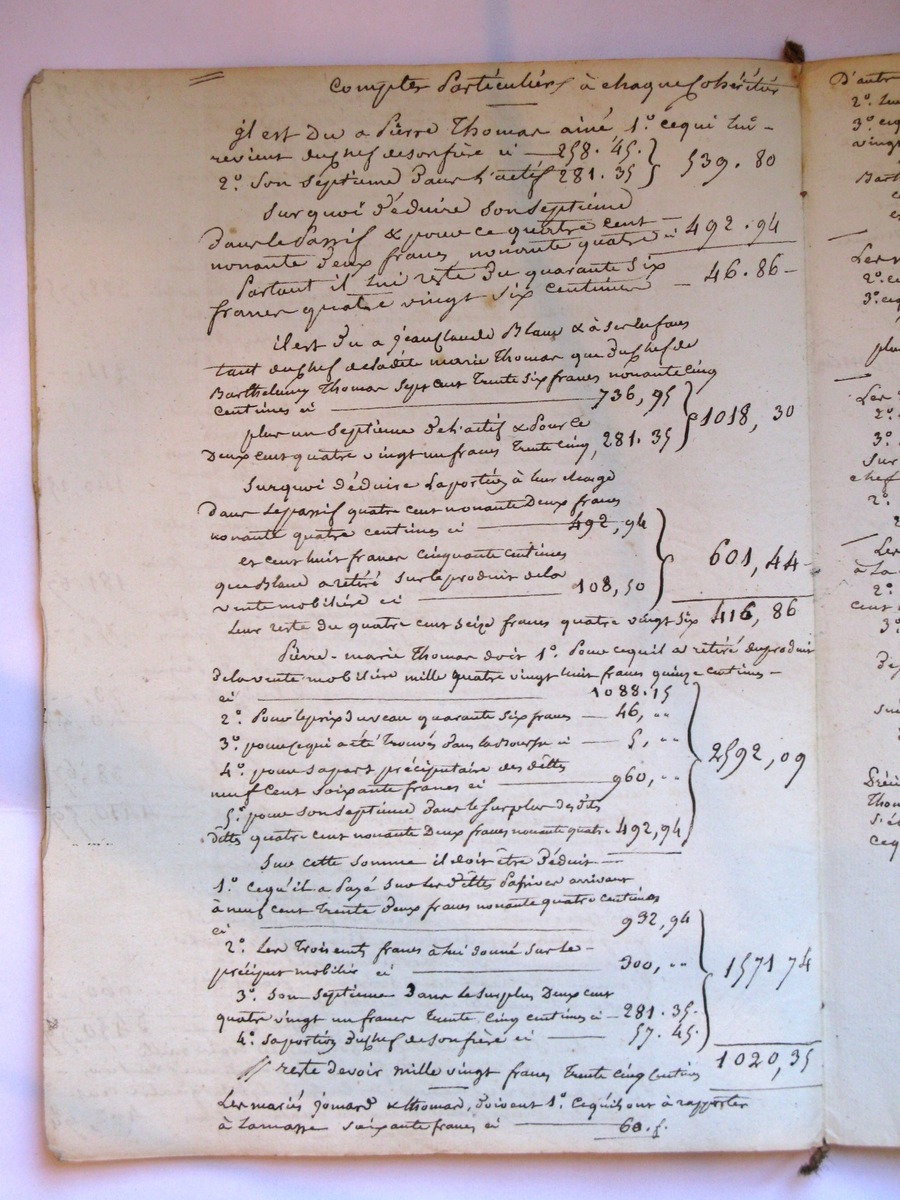 Comptes Particuliers à chaque Cohéritier
il est Du a Pierre Thomas ainé 1.° ce qui lui
revient du chef de son frère ci 258. 45. } 539. 80
2.° Son Septième Dans l'actif 281. 35
Sur quoi Déduire Son Septieme
dans le Passif & pour ce quatre cent
nonante Deux francs nonante quatre ci 492. 94
Partant il Lui reste Du quarante Six
francs quatre vingt Six centimes 46. 86
il est Du a jean claude Blanc & à Ses Enfans
tant du chef de ladite marie Thomas que Du chef de
Barthelemy Thomas Sept cent Trente Six francs nonante cinq
centimes ci 736, 95 } 1018, 30
plus un Septieme de l'actif & Pour ce
Deux cent quatre vingt un francs Trente cinq, 281. 35
Sur quoi Déduire La portion à leur charge
dans Le passif quatre cent nonante Deux francs
nonante quatre centimes ci 492, 94
et cent huit francs cinquante centimes } 601, 44
que Blanc a retiré Sur le produit de la
vente mobiliére ci 108, 50
Leur reste du quatre cent Seize francs quatre vingt Six 416, 86
Pierre-marie Thomas doit 1.° Pour ce qu'il a retiré du produit
de la vente mobiliére mille quatre vingt huit francs quinze centimes
ci 1088. 15
2.° Pour le prix du veau quarante Six francs 46, "
3.° pour ce qui a été Trouvés dans la Bourse ci 5, " } 2592, 09
4.° pour Sa part préciputaire des Dettes
neuf Cent Soixante francs ci 960, "
5.° pour son Septieme Dans le Surplus desdites
dettes quatre cent nonante Deux francs nonante quatre 492, 94
Sur cette Somme il doit être Déduit
1.° Ce qu'il a Payé Sur Les Dettes Passives arrivant
à neuf cent Trente Deux francs nonante quatre centimes
ci 932, 94
2.° Les Trois cents francs à lui donné Sur Le
précipu mobilier ci 300, " } 1571 74
3.° Son Septième Dans Le Surplus Deux cent
quatre vingt un francs Trente Cinq centimes ci 281. 35.
4.° Sa portion Du chef de Son frère ci 57. 45.
Il reste devoir mille vingt francs Trente Cinq Centimes 1020, 35
Les mariés jomard & Thomas, Doivent 1.° Ce qu'ils ont à rapporter
à La masse Soixante francs ci 60. f.
D'autr
2.°
3.° ce q
vingt
Bart
plu
Les
2.°
3.°
Sur
chef
2.°
Les
à La
2.°
cent
3.°
Thom
ce q